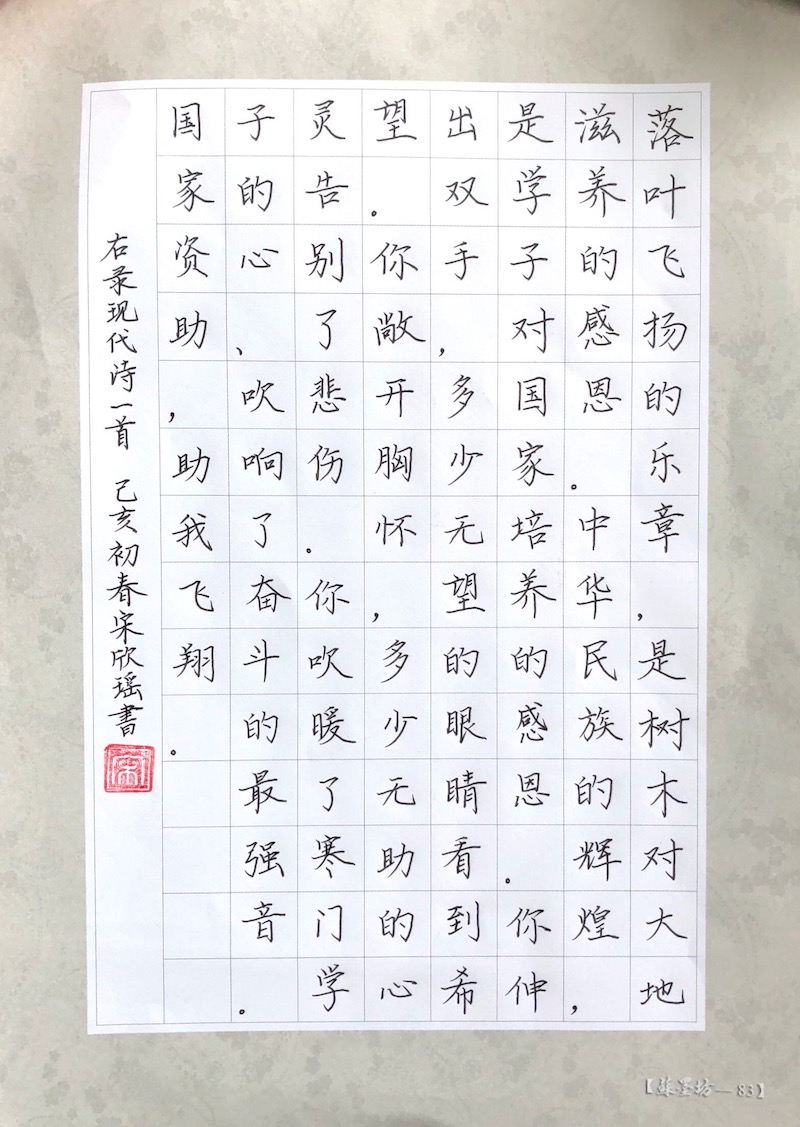 落叶飞扬的乐章，是树木对大地
滋养的感恩。中华民族的辉煌，
是学子对国家培养的感恩。你伸
出双手，多少无望的眼睛看到希
望。你敞开胸怀，多少无助的心
灵告别了悲伤。你吹暖了寒门学
子的心、吹响了奋斗的最强音。
国家资助，助我飞翔。
右录现代诗一首 己亥初春宋欣瑶書
宋
【蘇墨坊—83】